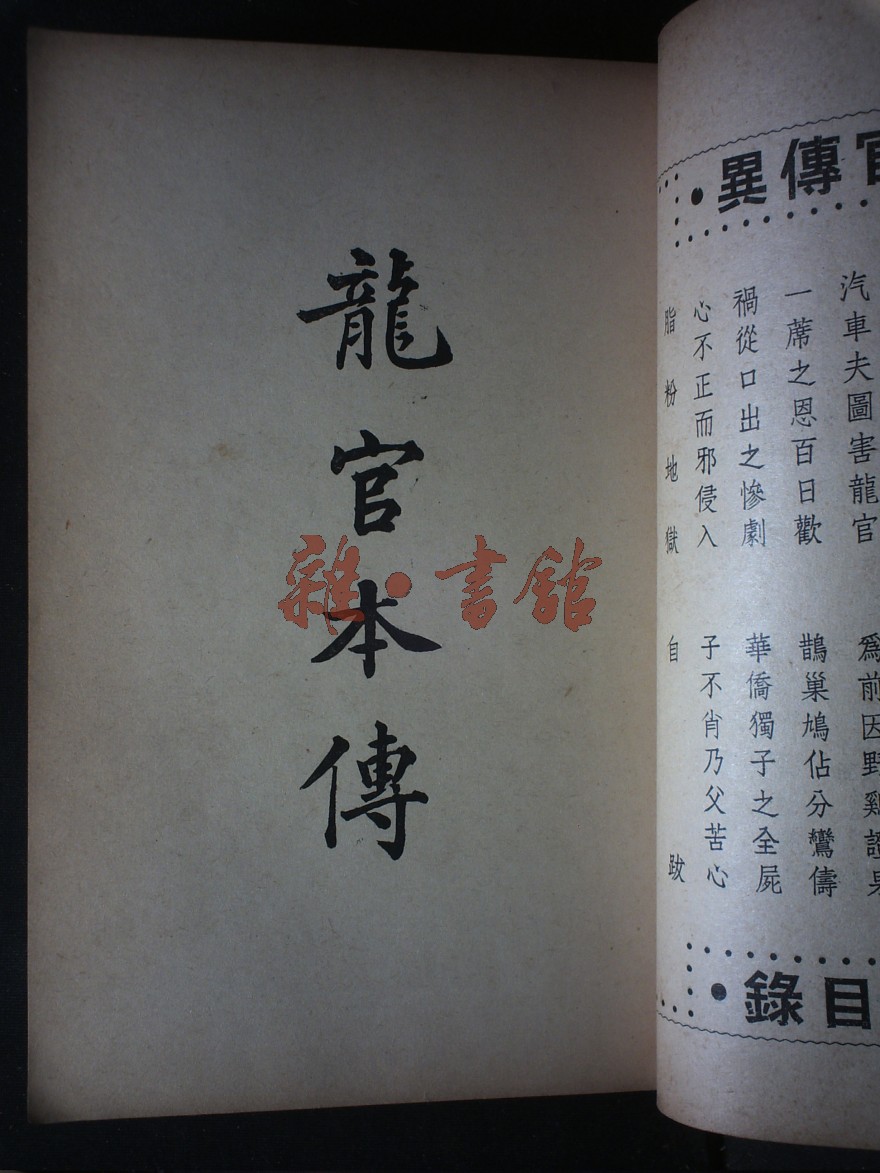 官傳異
汽車夫圖害龍官 爲前因野雞證果
一蓆之恩百日歡 鵲巢鳩佔分鸞儔
禍從口出之慘劇 華僑獨子之全屍
心不正而邪侵入 子不肖乃父苦心
脂粉地獄 自跋
目錄
龍官本傳
雜·書館